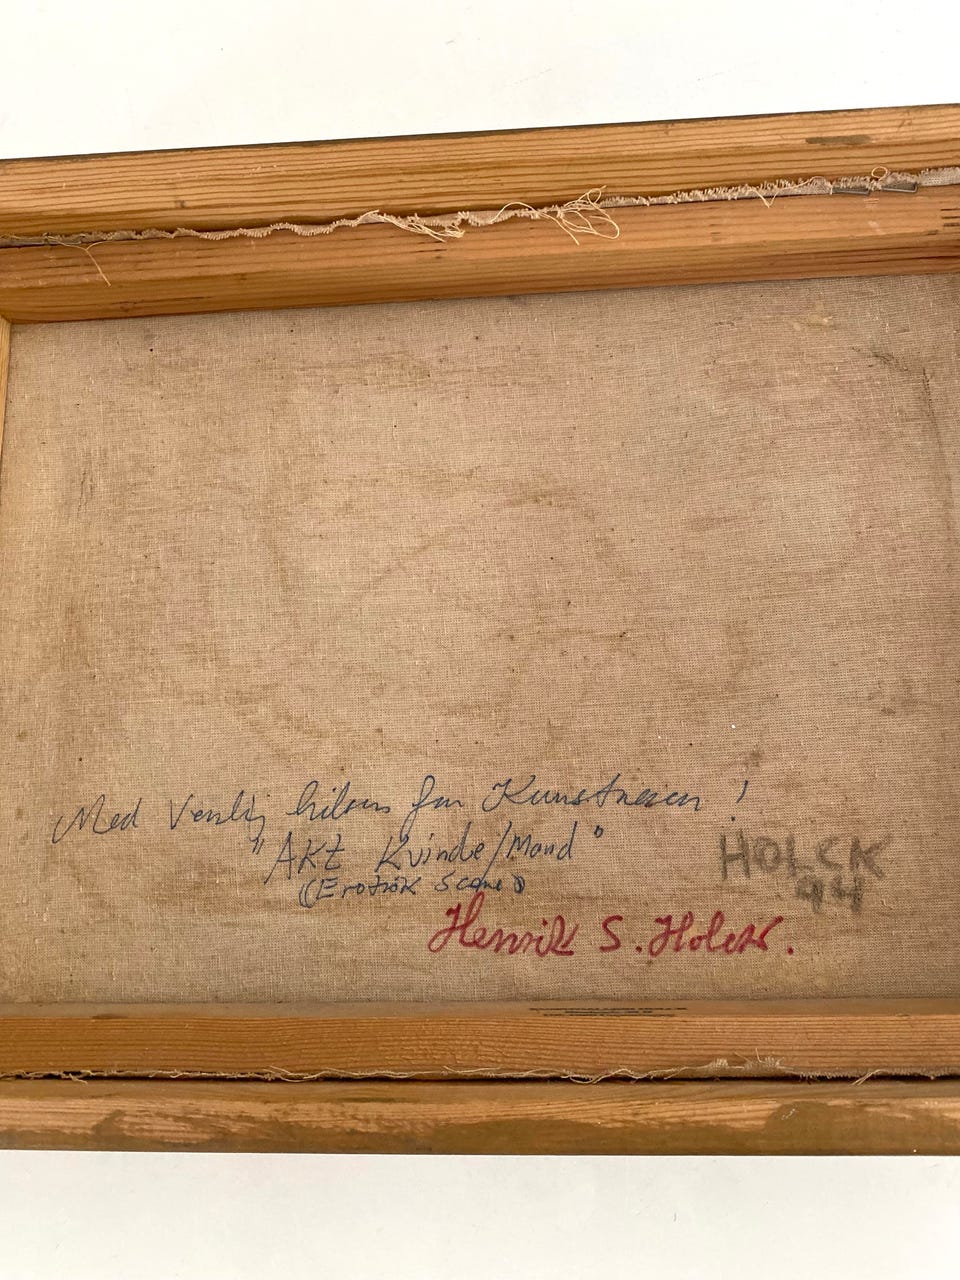 Med Venlig hilsen fra Kunstneren !
"AKt Kvinde/Mand"
(Erotisk Scene)
HOLCK
94
Henrik S. Holck.